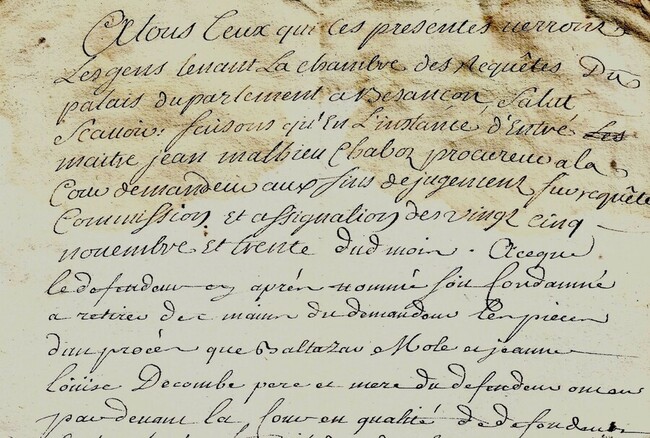 A tous Ceux qui Ces presentes verront
Les gens tenant La chambre des Requêtes Du
palais du parlement a Besancon, Salut
Scavoir: faisons qu'En L'instance d'Entre
maitre jean mathieu Chaboz procureur a la
Cour demandeur aux fins de jugement sur requête
Commission et assignation des vingt cinq
novembre et trente dud mois. A ce que
le defendeur cy aprés nommé soit Condamné
a retirer des mains du demandeur Les pieces
d'un procés que Baltazar Mole et jeanne
loüise Decombe pere et mere du defendeur ont eu
par devant la Cour en qualité de defendeurs